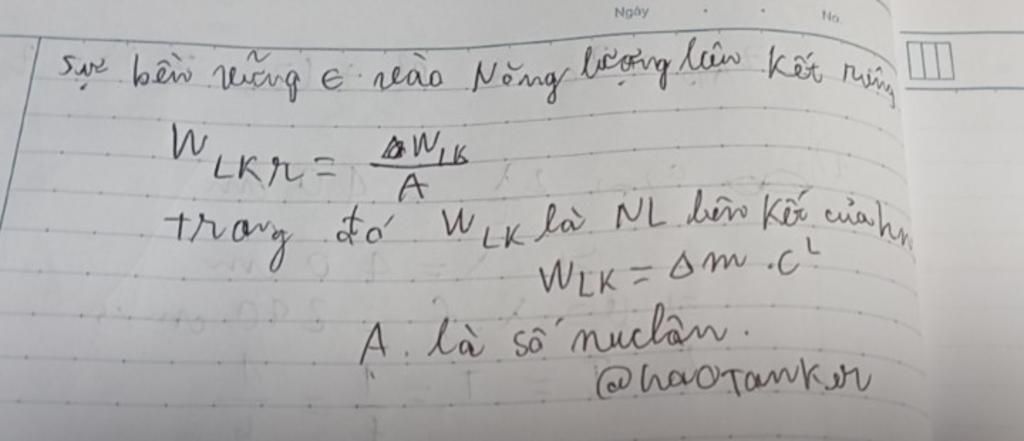 Ngày
No.
Sự bền vững ∈ vào Năng lượng liên kết riêng
W_LKr = ΔW_LK / A
trong đó W_LK là NL liên kết của hn
W_LK = Δm . c²
A. là số nuclôn.
@haoTanker